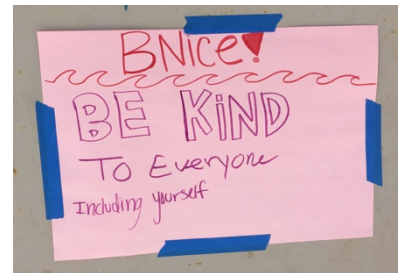 BNice!
BE KiND
To Everyone
Including yourself